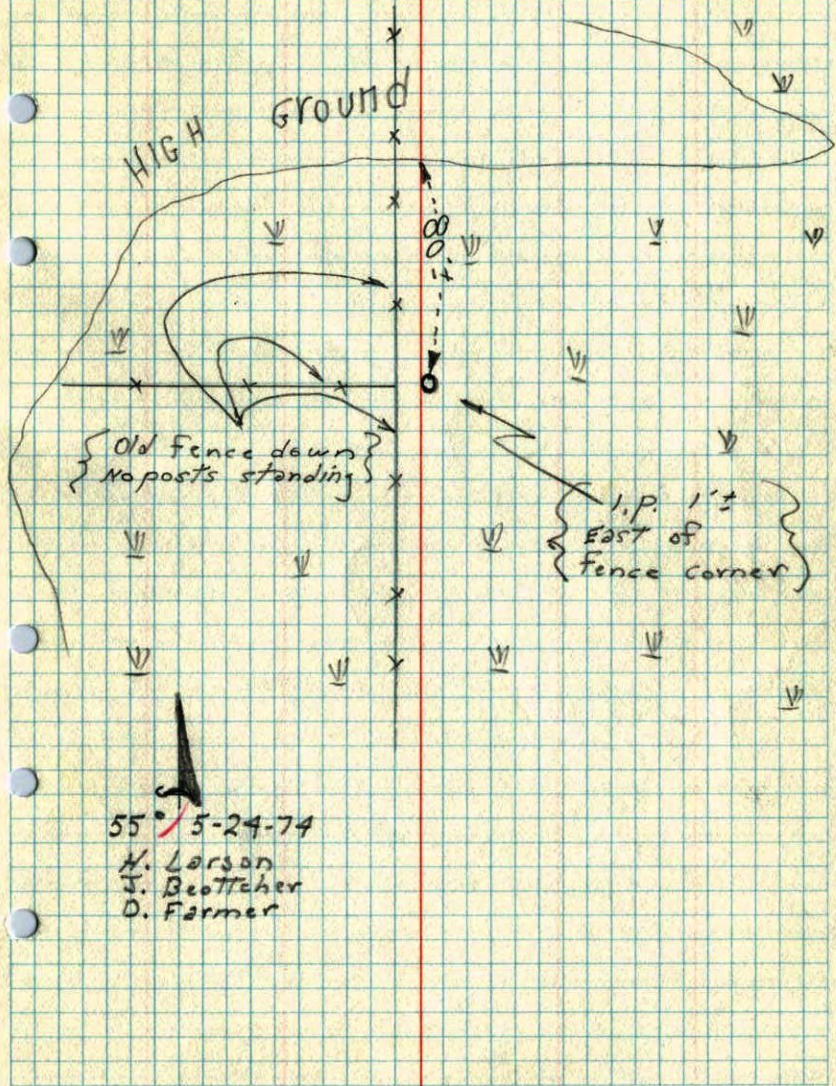 HIGH Ground
80'±
Old Fence down
No posts standing
I.P. 1'±
East of
Fence corner
55° 5-24-74
H. Larson
J. Beottcher
D. Farmer